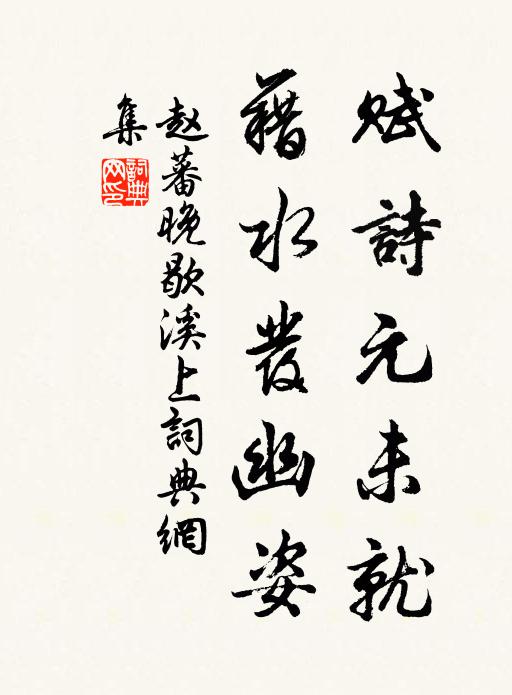 賦詩元未就
藉水發幽姿
赵蕃晚歇溪上詞典網
集
詞典網印